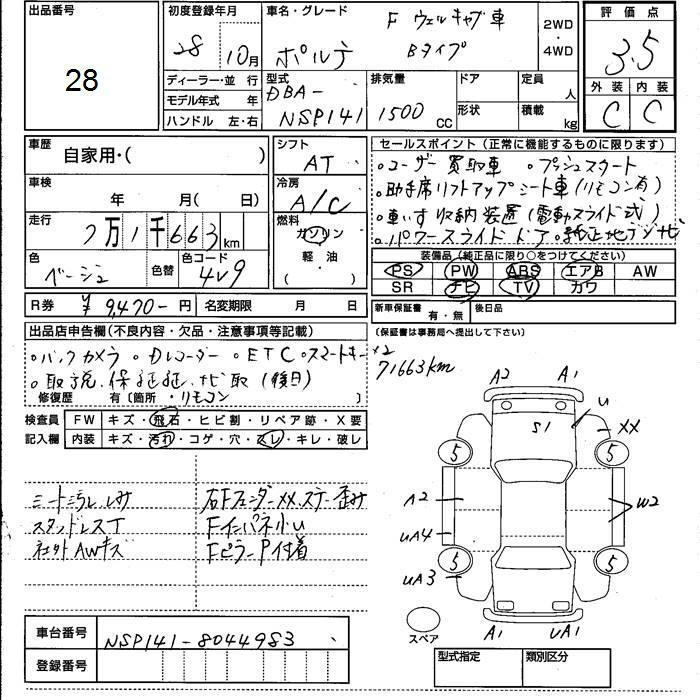 出品番号
28
初度登録年月
28 10月
車名・グレード
F ウェルキャブ車
ポルテ Bタイプ
2WD
・
4WD
評価点
3.5
外装 内装
C C
ディーラー・並行
モデル年式 年
ハンドル 左・右
型式
DBA-
NSP141
排気量
1500 CC
ドア
形状
定員
人
積載
kg
車歴
自家用・( )
車検
年 月( 日)
走行
7万1千663km
色
ベージュ
色替
色コード
4V9
R券 ¥9,470-円
名変期限 月 日
シフト
AT
冷房
A/C
燃料
ガソリン
軽・油
( )
セールスポイント(正常に機能するものに限ります)
・ユーザー買取車 ・プッシュスタート
・助手席リフトアップシート車(リモコン有)
・車いす収納装置(電動スライド式)
・パワースライドドア・純正地デジナビ
装備品(純正品に限り○をつけてください)
PS PW ABS エアB AW
SR ナビ TV カワ
新車保証書 有・無 後日品
(保証書は事務局へ提出して下さい)
出品店申告欄(不良内容・欠品・注意事項等記載)
・バックカメラ ・Dレコーダー ・ETC ・スマートキー×2
・取説、保証証、ナビ取(後日)
・リモコン
修復歴 有〔箇所 〕
71663km
検査員
記入欄
FW キズ・飛石・ヒビ割・リペア跡・X要
内装 キズ・汚れ・コゲ・穴・スレ・キレ・破レ
シートシミ
スタッドレスT
社外AWキズ
右FフェンダーXX、ステー歪み
FインパネU
FピラーP付着
A2 A1
U
S1
XX
5 5
A2
W2
UA4
5 5
UA3
スペア
A1 UA1
車台番号 NSP141-8044983
登録番号
型式指定 類別区分